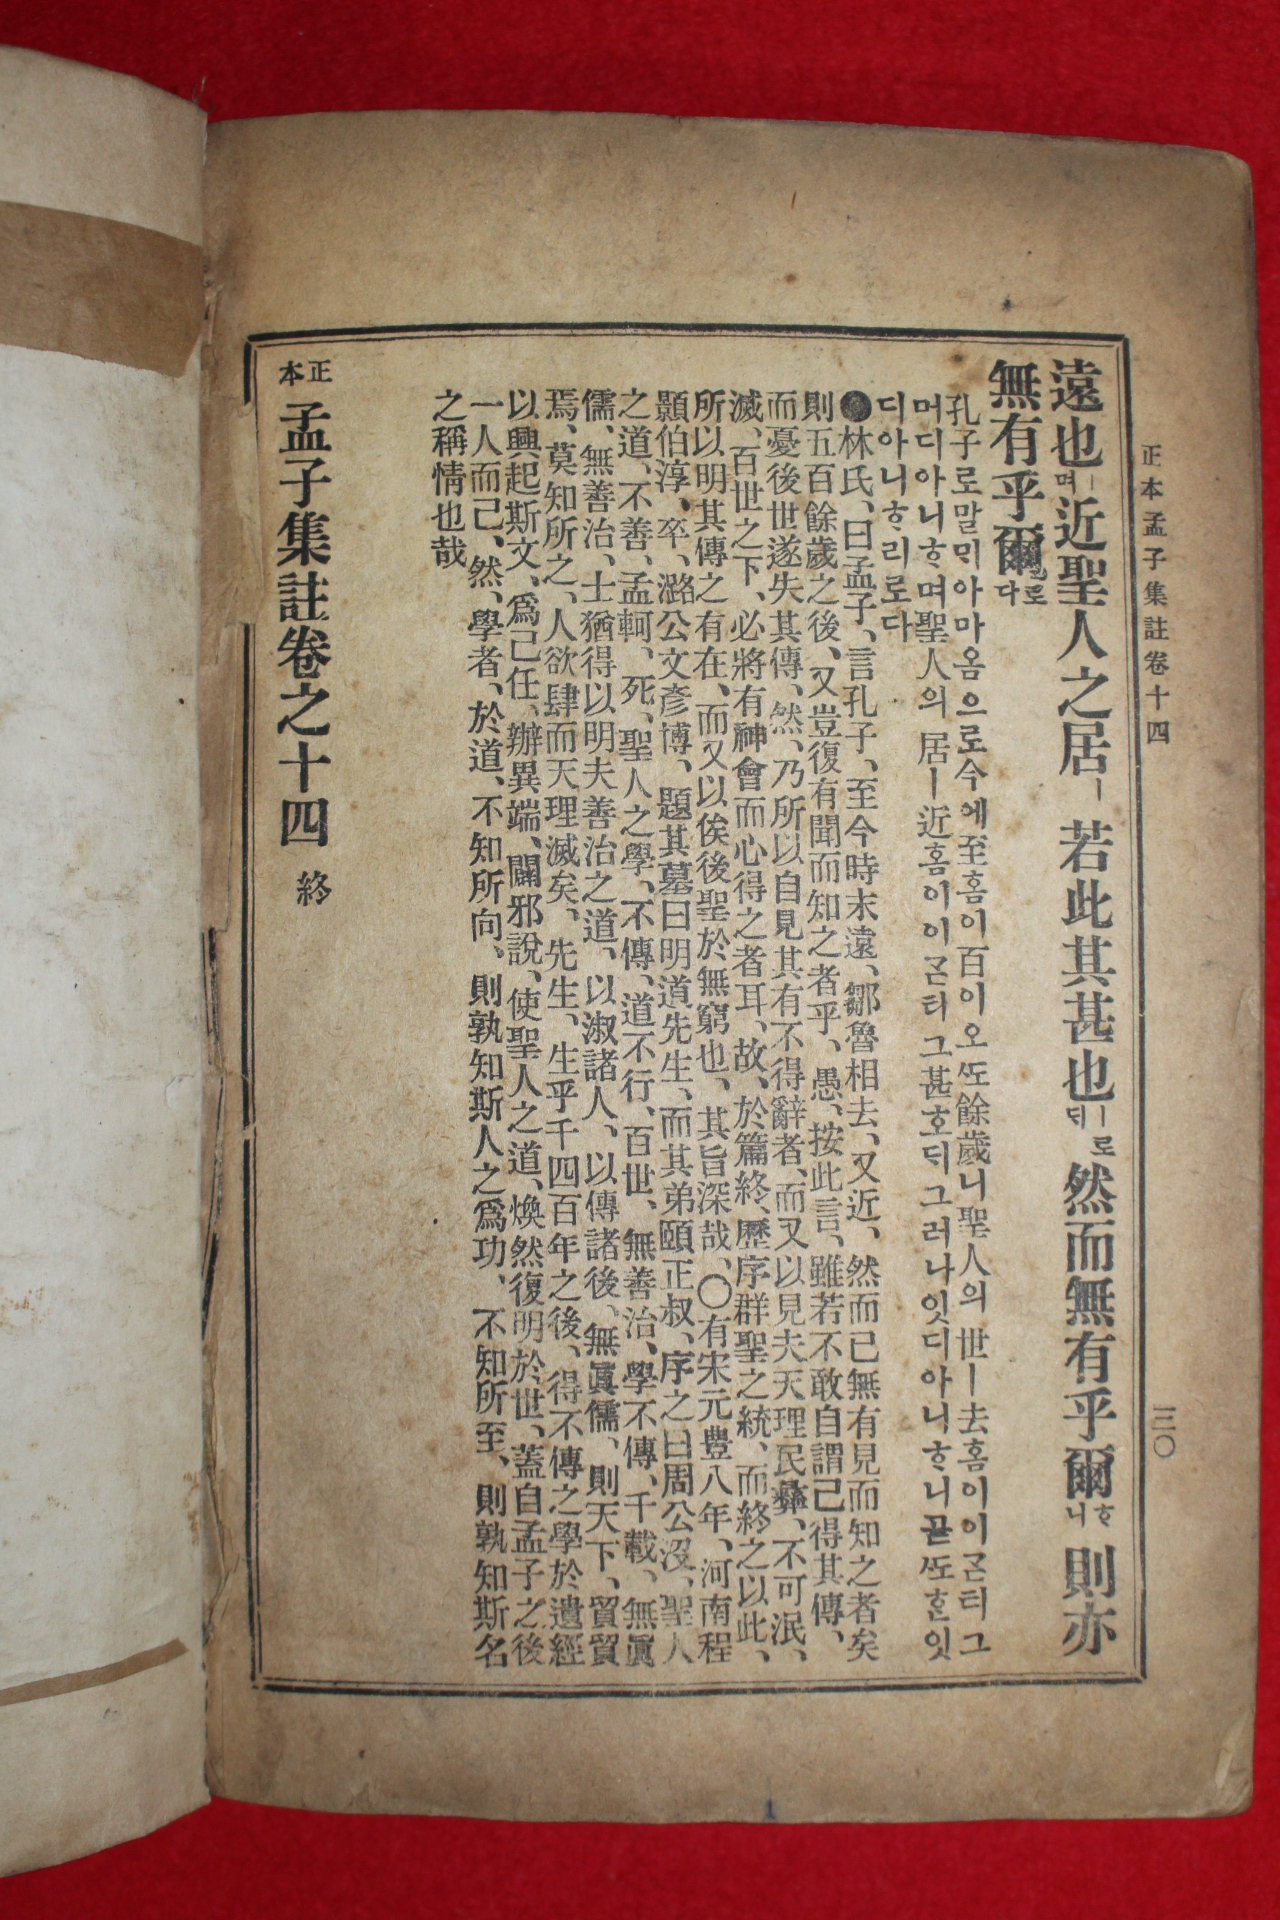 正本孟子集註卷十四
三〇
遠也ㅣ며近聖人之居ㅣ若此其甚也ㅣ로ᄃᆡ然而無有乎爾ᄒᆞ니則亦
無有乎爾로다
孔子로말ᄆᆡ아마옴으로今에至홈이百이오ᄯᅩ餘歲니聖人의世ㅣ去홈이이ᄀᆞᆮ티그
머디아니ᄒᆞ며聖人의居ㅣ近홈이이ᄀᆞᆮ티그甚호ᄃᆡ그러나잇디아니ᄒᆞ니곧ᄯᅩᄒᆞᆫ잇
디아니ᄒᆞ리로다
●林氏、曰孟子、言孔子、至今時末遠、鄒魯相去、又近、然而已無有見而知之者矣
則五百餘歲之後、又豈復有聞而知之者乎、愚、按此言、雖若不敢自謂己得其傳、
而憂後世遂失其傳、然、乃所以自見其有不得辭者、而又以見夫天理民彝、不可泯、
滅、百世之下、必將有神會而心得之者耳、故、於篇終、歷序群聖之統、而終之以此、
所以明其傳之有在、而又以俟後聖於無窮也、其旨深哉、〇有宋元豊八年、河南程
顥伯淳、卒、潞公文彥博、題其墓曰明道先生、而其弟頤正叔、序之曰周公沒、聖人
之道、不善、孟軻、死、聖人之學、不傳、道不行、百世、無善治、學不傳、千載、無眞
儒、無善治、士猶得以明夫善治之道、以淑諸人、以傳諸後、無眞儒、則天下、貿貿
焉、莫知所之、人欲肆而天理滅矣、先生、生乎千四百年之後、得不傳之學於遺經
以興起斯文、爲己任、辦異端、闢邪說、使聖人之道、煥然復明於世、蓋自孟子之後
一人而己、然、學者、於道、不知所向、則孰知斯人之爲功、不知所至、則孰知斯名
之稱情也哉
正本 孟子集註卷之十四 終